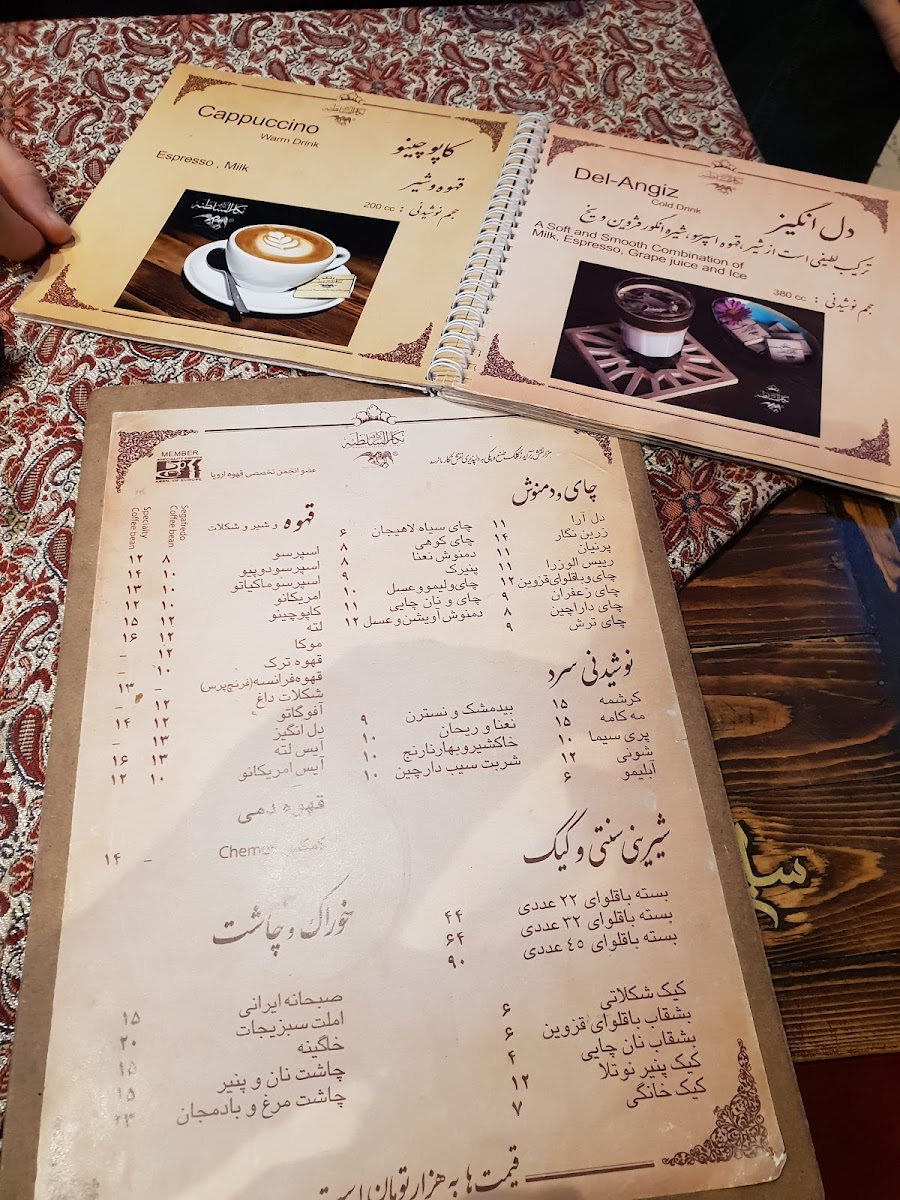 Cappuccino
Warm Drink
Espresso . Milk
کاپوچینو
قهوه و شیر
حجم نوشیدنی : 200 cc
نگارالسلطنه
Del-Angiz
Cold Drink
دل انگیز
ترکیب لطیفی است از شیر، قهوه اسپرسو، شیره انگور قزوین و یخ
A Soft and Smooth Combination of
Milk, Espresso, Grape juice and Ice
حجم نوشیدنی : 380 cc
نگارالسلطنه
MEMBER
عضو انجمن تخصصی قهوه اروپا
چای و دمنوش
دل آرا ۱۱
زرین نگار ۱۴
پرنیان ۱۱
رییس الوزرا ۱۱
چای و باقلوای قزوین ۱۲
چای زعفران ۹
چای داراچین ۸
چای ترش ۹
چای سیاه لاهیجان ۶
چای کوهی ۸
دمنوش نعنا ۸
پنیرک ۹
چای و لیمو و عسل ۱۰
چای و نان چایی ۱۱
دمنوش آویشن و عسل ۱۲
نوشیدنی سرد
کرشمه ۱۵
مه کامه ۱۵
پری سیما ۱۰
شونی ۱۲
آبلیمو ۶
بیدمشک و نسترن ۹
نعنا و ریحان ۱۰
خاکشیر و بهارنارنج ۱۰
شربت سیب دارچین ۱۰
شیرینی سنتی و کیک
بسته باقلوای ۲۲ عددی ۴۴
بسته باقلوای ۳۲ عددی ۶۴
بسته باقلوای ۴۵ عددی ۹۰
کیک شکلاتی ۶
بشقاب باقلوای قزوین ۶
بشقاب نان چایی ۴
کیک پنیر نوتلا ۱۲
کیک خانگی ۷
قهوه و شیر و شکلات
Segafredo
Coffee bean
Specialty
Coffee bean
اسپرسو ۸ ۱۲
اسپرسو دوپیو ۱۰ ۱۴
اسپرسو ماکیاتو ۱۰ ۱۳
امریکانو ۱۰ ۱۲
کاپوچینو ۱۲ ۱۵
لته ۱۲ ۱۶
موکا ۱۲ –
قهوه ترک ۱۰ –
قهوه فرانسه (فرنچ پرس) – ۱۳
شکلات داغ ۱۲ –
آفوگاتو ۱۲ ۱۴
دل انگیز ۱۳ –
آیس لته ۱۳ ۱۶
آیس امریکانو ۱۰ ۱۲
قهوه دمی
– ۱۴
خوراک و چاشت
صبحانه ایرانی ۱۵
املت سبزیجات ۲۰
خاگینه ۱۵
چاشت نان و پنیر ۱۵
چاشت مرغ و بادمجان ۲۳
قیمت ها به هزار تومان است